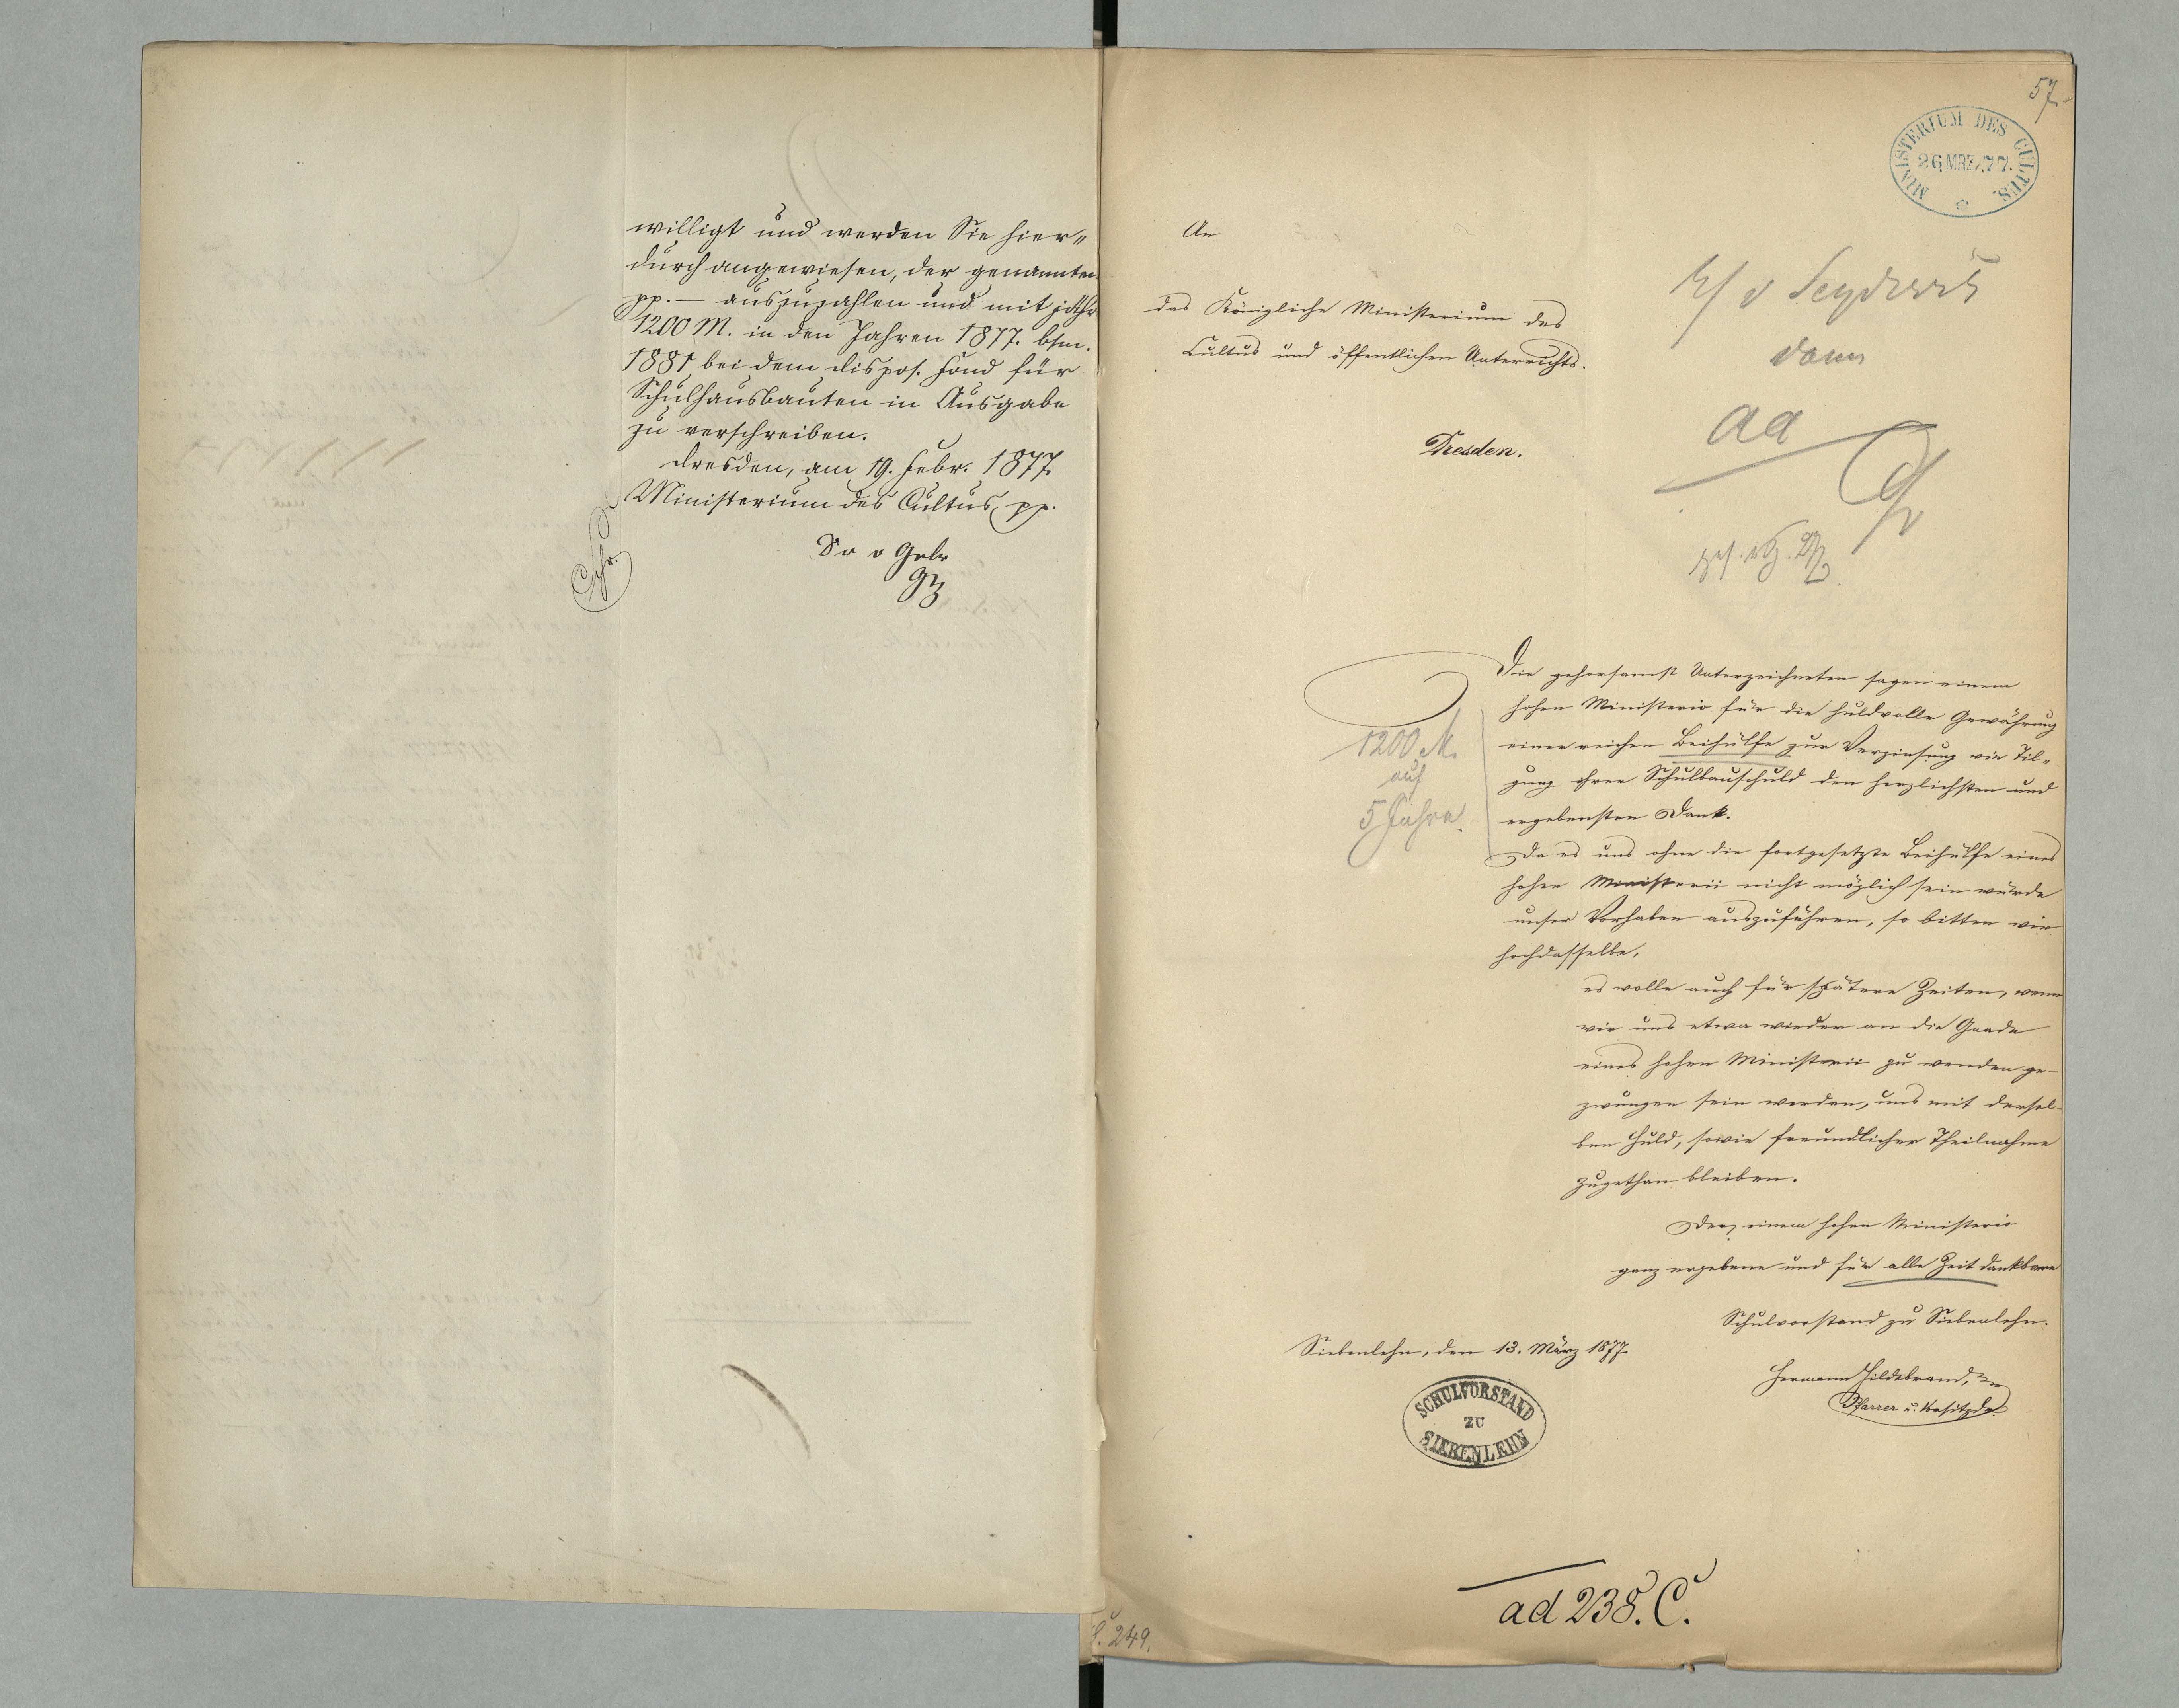 willigt und werden Sie hier„
durch angewiesen, der genannten
pp. — auszuzahlen und mit jähr
1200 M. in den Jahren 1877. bsm.
1881 bei dem dispos. Fond für
Schulhausbauten in Ausgabe
zu verschreiben.
Dresden, am 19. Febr. 1877.
Ministerium des Cultus pp.
57.
MINISTERIUM DES CULTUS.
26.MRZ.77.
An
das Königliche Ministerium des
Cultus und öffentlichen Unterrichts.
Dresden.
v Seydewitz
dann
ad
Die gehorsamst Unterzeichneten sagen einem
hohen Ministerio für die huldvolle Gewährung
einer reichen Beihülfe zur Verzinsung wie Til„
gung ihrer Schulbauschuld den herzlichsten und
ergebensten Dank.
1200 M.
auf
5 Jahre.
Da es uns ohne die fortgesetzte Beihülfe eines
hohen Ministerii nicht möglich sein würde
unser Vorhaben auszuführen, so bitten wir
hochdasselbe,
es wolle auch für spätere Zeiten, wenn
wir uns etwa wieder an die Gnade
eines hohen Ministerii zu wenden ge-
zwungen sein werden, uns mit dersel-
ben Huld, sowie freundlicher Theilnahme
zugethan bleiben.
Der, einem hohen Ministerio
ganz ergebene und für alle Zeit dankbare
Schulvorstand zu Siebenlehn.
Siebenlehn, den 13. März 1877.
Hermann Hildebrand,
Pfarrer u. Vorsitzdr.
SCHULVORSTAND
ZU
SIEBENLEHN
ad 238. C.
249.